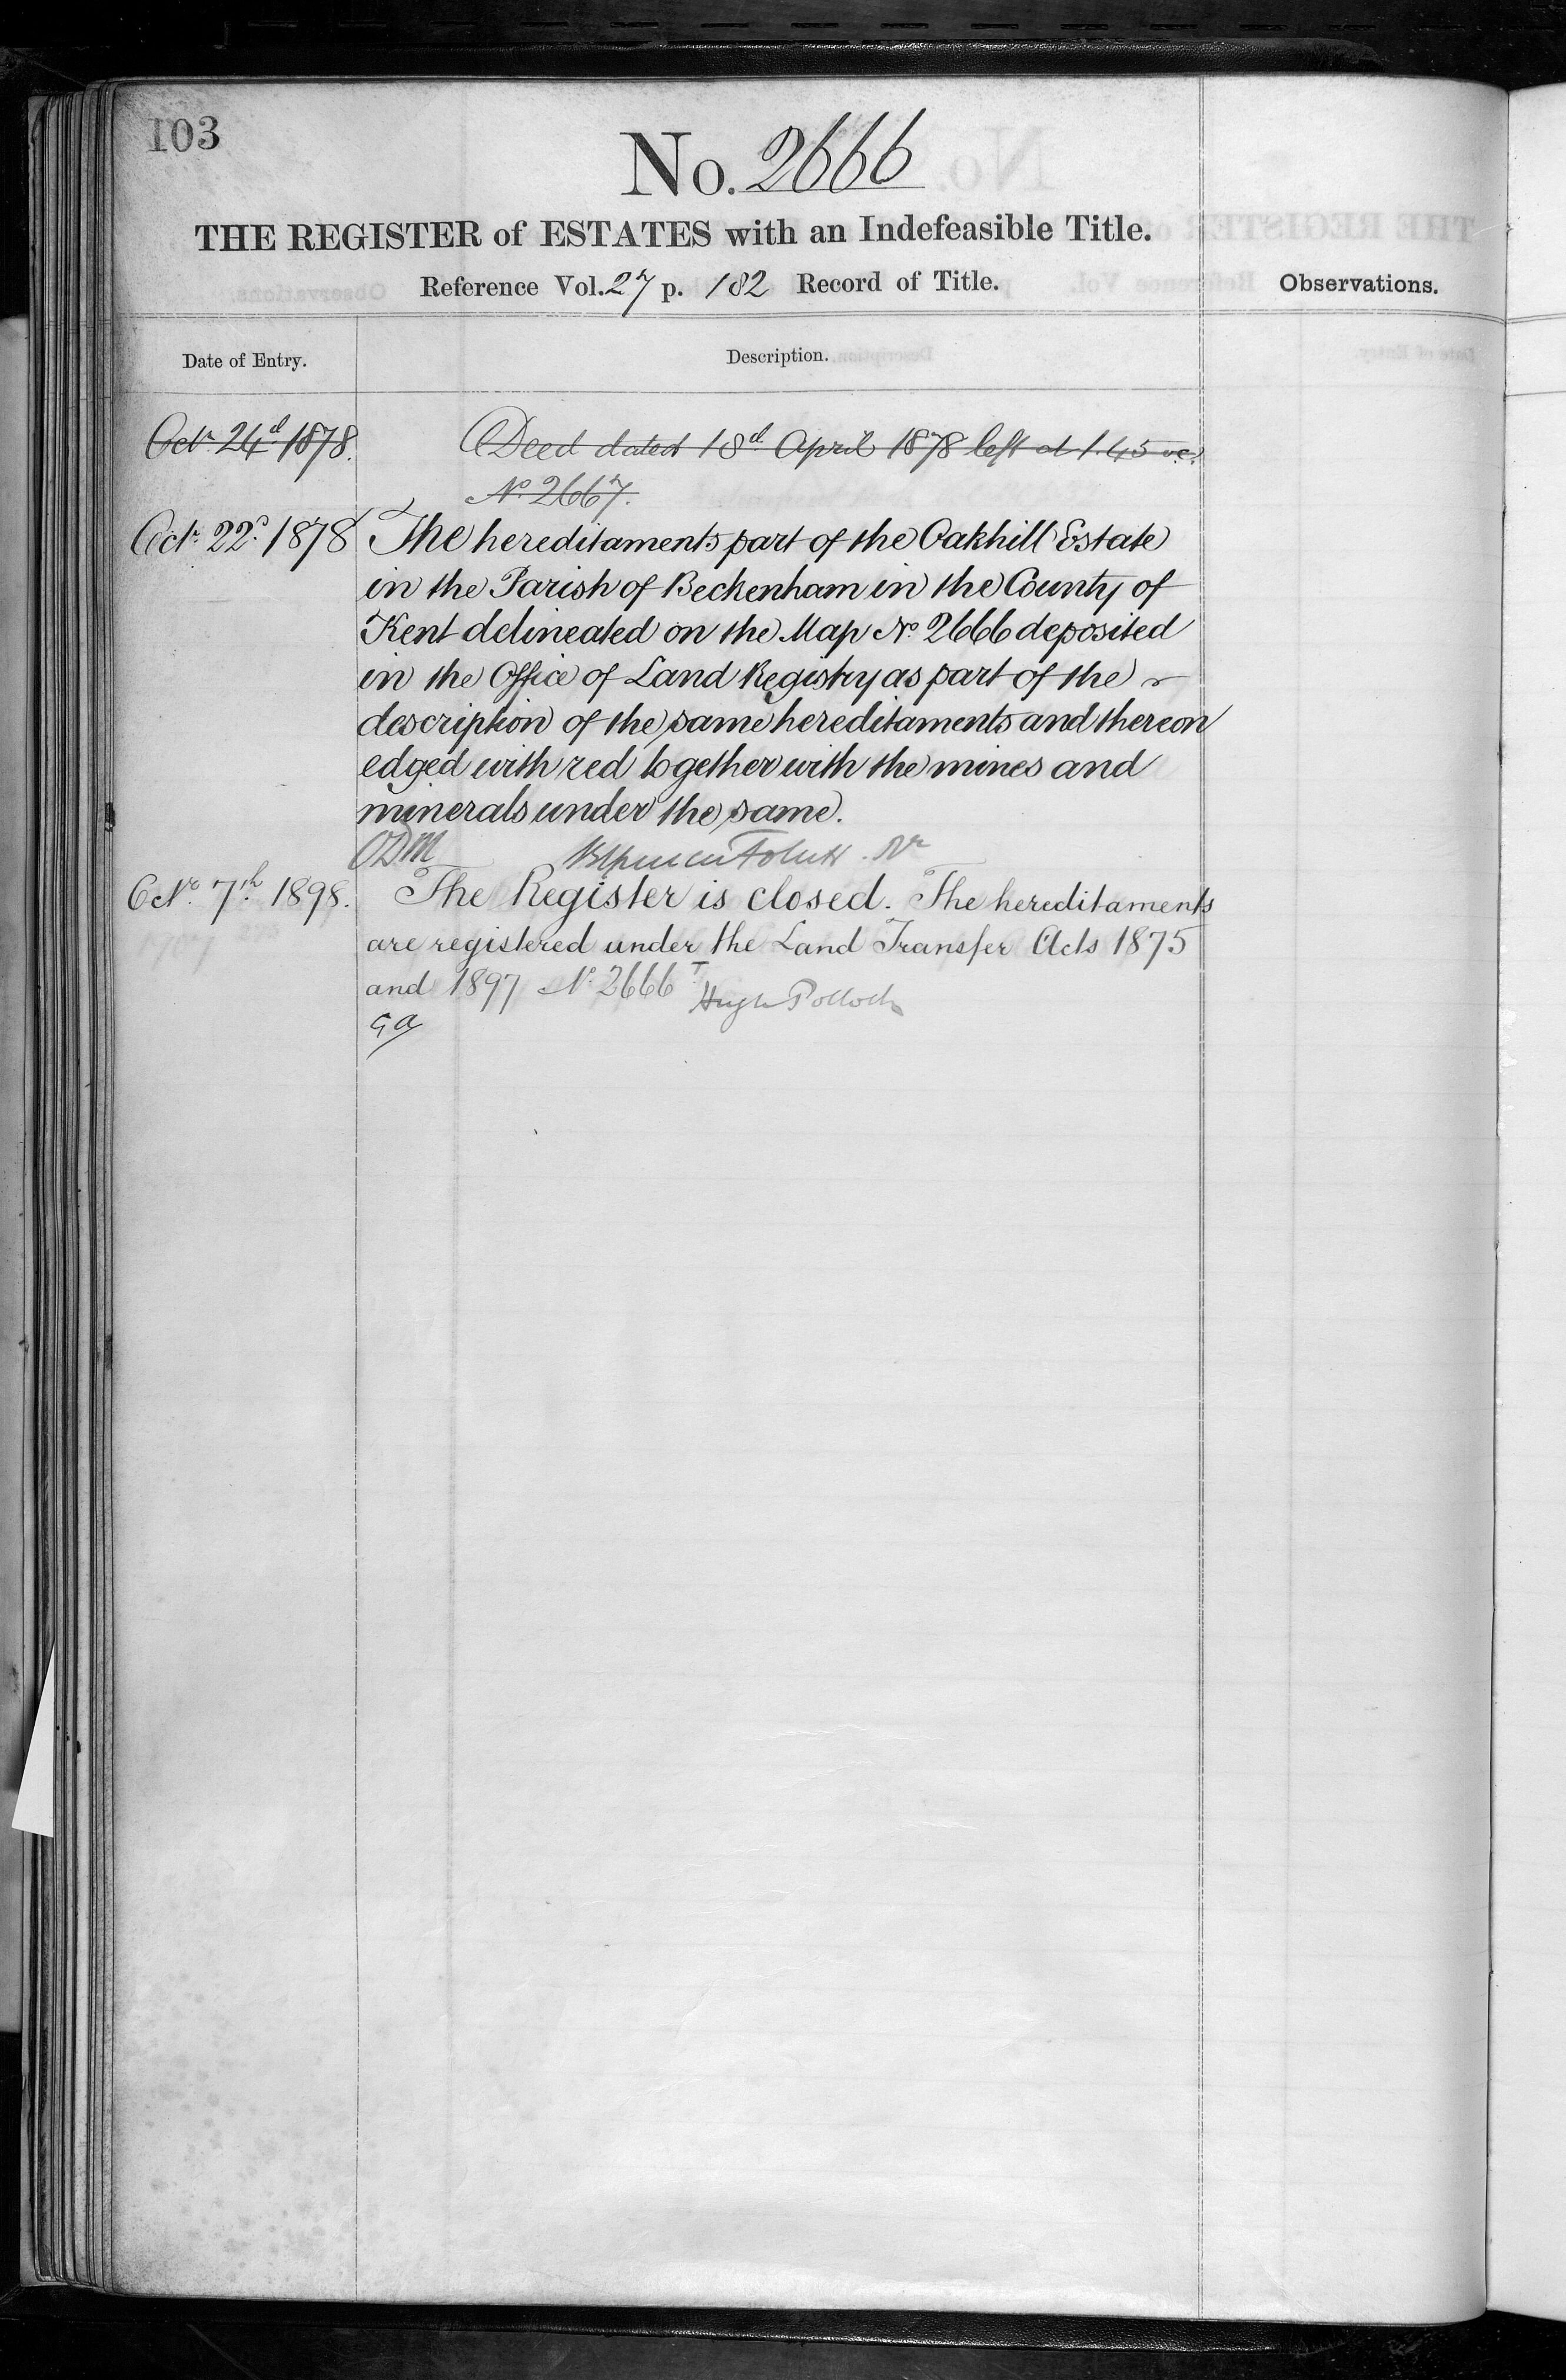 103
No. 2666
THE REGISTER of ESTATES with an Indefeasible Title.
Reference Vol. 27 p. 182 Record of Title.
Observations.
Date of Entry.
Description.
Octr 24th 1878.
Deed dated 18th April 1878 left at 1.45
No 2667.
Octr 22d 1878
The hereditaments part of the Oakhill Estate
in the Parish of Beckenham in the County of
Kent delineated on the Map No 2666 deposited
in the Office of Land Registry as part of the
description of the same hereditaments and thereon
edged with red together with the mines and
minerals under the same.
ODM
7th 1898.
The Register is closed. The hereditaments
are registered under the Land Transfer Acts 1875
and 1897 No 2666 T
Hugh Pollock
GA